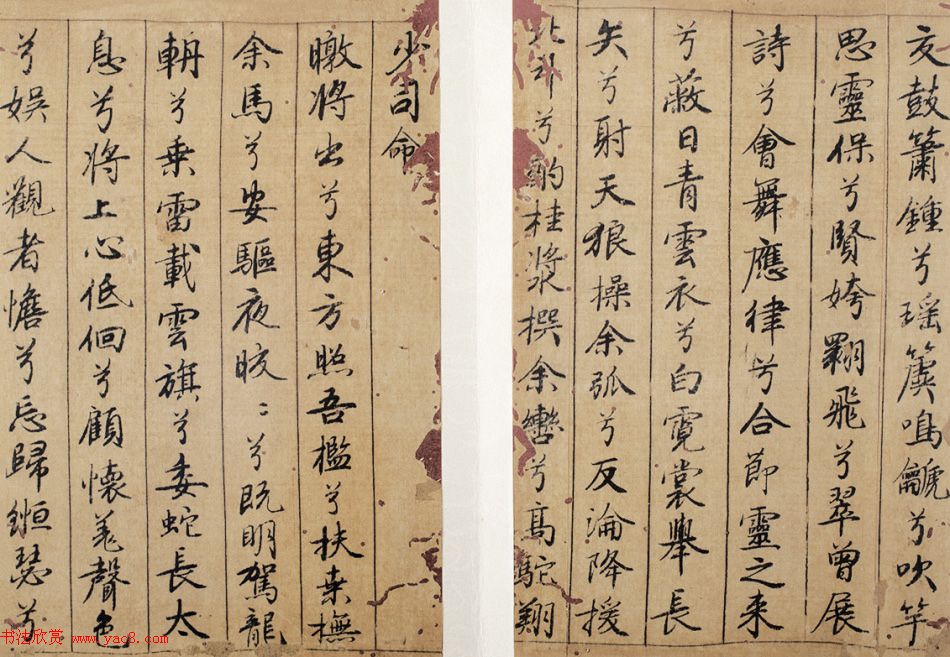 交鼓簫鍾兮瑶簴鳴䶵兮吹竽
思靈保兮賢姱翾飛兮翠曾展
詩兮會舞應律兮合節靈之来
兮蔽日青雲衣兮白霓裳舉長
矢兮射天狼操余弧兮反淪降援
北斗兮酌桂漿撰余轡兮高駝翔
少司命
暾將出兮東方照吾檻兮扶桒撫
余馬兮安驅夜晈〻兮既明駕龍
輈兮乗雷載雲旗兮委蛇長太
息兮將上心低佪兮顧懷羌聲色
兮娱人觀者憺兮忘歸縆瑟兮
书法欣赏 www.yac8.com